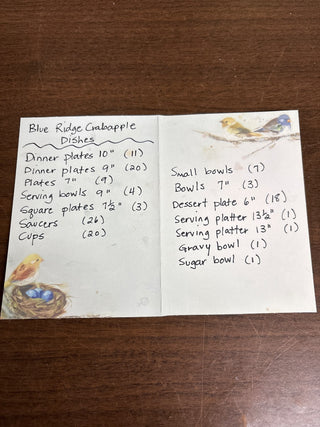 Blue Ridge Crabapple
Dishes
Dinner plates 10" (11)
Dinner plates 9" (20)
Plates 7" (9)
Serving bowls 9" (4)
Square plates 7½" (3)
Saucers (26)
Cups (20)
Small bowls (7)
Bowls 7" (3)
Dessert plate 6" (18)
Serving platter 13½" (1)
Serving platter 13" (1)
Gravy bowl (1)
Sugar bowl (1)